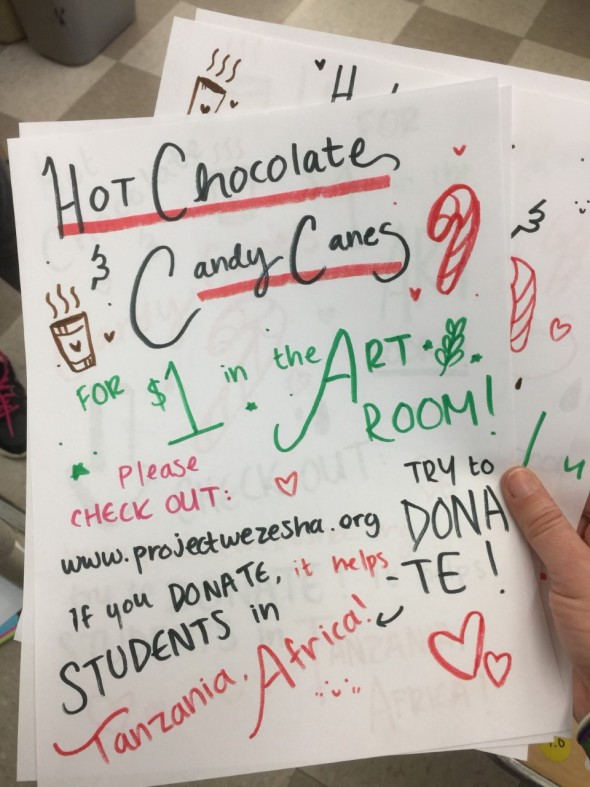 HOT Chocolate
&
Candy Canes
FOR $1 in the ART
ROOM!
Please
CHECK OUT:
www.projectwezesha.org
If you DONATE, it helps
STUDENTS in
Tanzania, Africa!
TRY to
DONA
-TE!
H
&